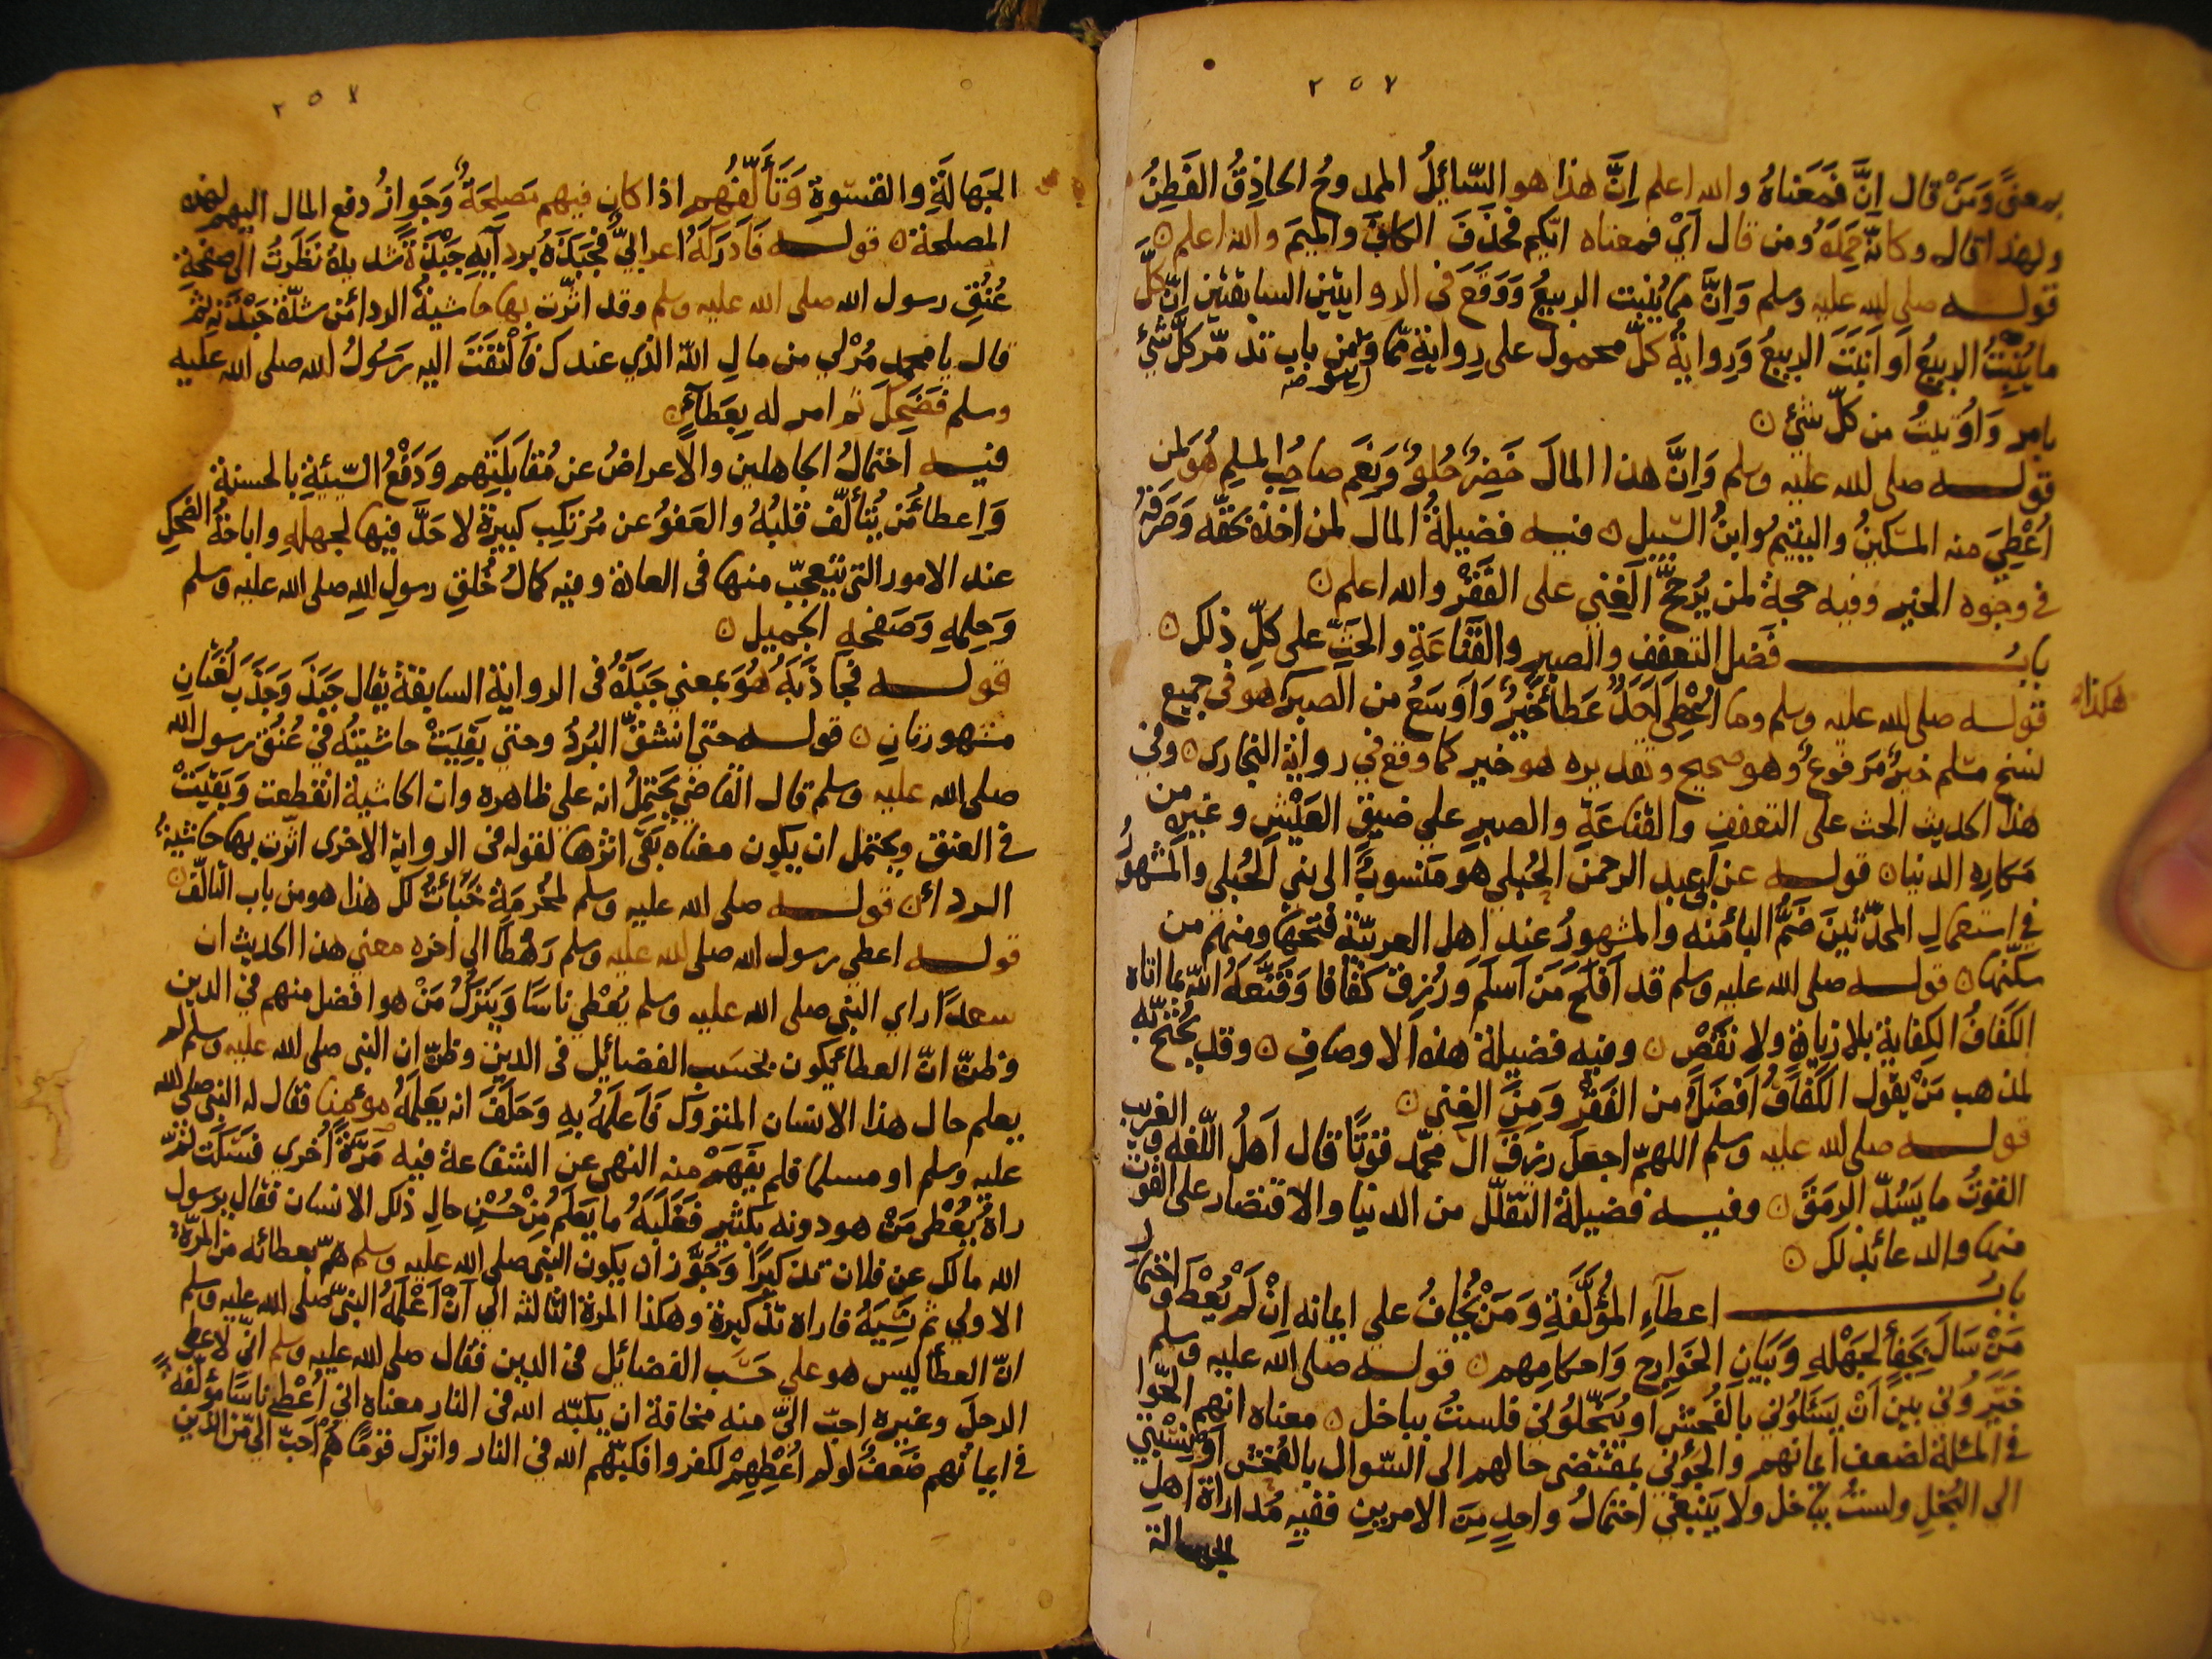 ٢٥٧
بمعنى وَمَنْ قال اِنَّ فَمَعَناهُ والله اعلم اِنَّ هذا هو السّائِلُ الممدوحُ الحاذِقُ الفَطِنُ
ولهذا قال وكانّه حَمِدَهُ ومن قال اَيْ فمعناه ايّكم فحُذَفَ الكافَ والميمَ والله اعلم
قوله صلى الله عليه وسلم وَاِنَّ مما يُنبِت الربيعُ وَوَقَعَ في الروايتَين السابقتَين اِنَّ كلَّ
ما يُنْبِتُ الربيعُ اَو اَنبَتَ الربيعُ وَرِوايةُ كلّ محمول على رِوايةِ مما وَهو من باب تدمّر كلَّ شَئ
بامر وَاُوتيتُ من كلّ شئ
قوله صلى الله عليه وسلم وَاِنَّ هذا المالَ خَضِرٌ حُلوٌ وَنِعَم صاحِبُ المسلمِ هُوَ لمن
اُعْطِيَ منه المسكينُ واليتيمُ وابنُ السّبيل فيه فضيلةُ المال لمن اخذه بحقّه وَصَرَفَهُ
في وجوه الخير وفيه حجة لمن يُرَجِّحُ الغِني على الفَقْر والله اعلم
بابُ فَضل التعفف والصبرِ والقَنَاعَةِ والحَثِّ على كلّ ذلك
قوله صلى الله عليه وسلم وما اُعْطِي اَحَدٌ عَطاءً خَيرٌ وَاَوسَعُ من الصبر كذا هو في جميع
هكذا
نسخ مسلم خيرٌ مَرفوعٌ وهو صحيح وتقديره هو خير كما وقع في رواية البخاري وفي
هذا الحديث الحث على التعففِ والقَناعَةِ والصبرِ علي ضيق العَيْشِ وغيرهِ من
مَكارِهِ الدنيا قوله عن ابي عبد الرحمن الحُبلي هو مَنسوبٌ الى بني الحُبلي والمَشهورُ
في استعمالِ المحدّثينَ ضَمُّ البا منه والمشهورُ عند اهل العربيّة فتحُهَا ومنهم من
سكّنها قوله صلى الله عليه وسلم قد اَفلَحَ مَن اَسلَم وَرُزِقَ كَفافا وَقَنَّعَهُ الله بما اتاه
الكَفَافُ الكِفاية بلا زيادةٍ ولا نَقصٍ وفيه فضيلة هذه الاوصافِ وقد يُحتَجُّ به
لمذهب مَنْ يَقول الكَفافُ اَفضَلُ من الفَقْرِ وَمِنَ الغِنى
قوله صلى الله عليه وسلم اللهمّ اجعل رزقَ ال محمّد قوتًا قال اَهلُ اللّغه والغريب
القوتُ ما يَسُدُّ الرمَقَ وفيه فضيلة التقلّل من الدنيا والاقتصار على القوت
منها والدعاء بذلك
بابُ اعطاءِ المُؤَلَّفَةِ وَمَنْ يُخَافُ علي ايمانه اِنْ لَمْ يُعْطَ وَاحتمال
مَنْ سَالَ بِجَفاءٍ لجَهْلهِ وَبَيَانِ الخوَارِجِ وَاحكامِهم قوله صلى الله عليه وسلم
خيّروُني بين اَنْ يَسئلوُني بالفُحش او يُبخّلوُني فلستُ بباخل معناه انهم الحّوا
في المسئلة لضعف ايمانهم والجؤني بمقتضى حالهم الى السؤال بالفحش او نِسْبَتي
الي البُخلِ ولستُ بباخل ولا يَنبَغي احتمالُ واحدٍ مِنَ الامرينِ ففيهِ مُداراةُ اهلِ
الجهالة
٢٥٧
الجَهالَةِ والقَسْوَةِ وَتَأَلّفُهم اذا كان فيهم مَصلِحَةٌ وَجَوازُ دفع المال اليهم لهذه
المصلحة قوله فَاَدرَكَهُ اعرابيٌّ فجبَذَهُ بِردآيِهِ جَبْذَةً شديدةً نَظَرْتُ الى صَفحةِ
عُنُقِ رسول الله صلى الله عليه وسلم وقد اثّرت بها حاشيةُ الرداء من شدّة جَبْذَتِه ثم
قال يا محمد مُرْ لي من مالِ الله الذي عندك فَالْتَفَتَ اليه رَسُولُ الله صلى الله عليه
وسلم فَضَحِكَ ثم امر له بِعَطآءٍ
فيه احتمالُ الجاهلين والاعراضُ عن مُقابَلَتِهم وَدَفْعُ السّيّئةِ بالحسنة
وَاِعطاءُ مَن يُتألّف قلبُهُ والعَفوُ عن مُرتكِب كبيرةٍ لا حَدَّ فيها لجهلهِ واباحةُ الضحك
عند الامور التي يُتعجّب منها في العادة وفيه كمالُ خُلقِ رسولِ اللهِ صلى الله عليه وسلم
وَحِلمِهِ وَصَفحِهِ الجميل
قوله فجاذَبَهُ هُوَ بمعني جَبَذَهُ في الرواية السابقة يقال جَبَذَ وَجَذَبَ لُغَتانِ
مشهورتانِ قوله حتى انشقّ البُردُ وحتى بَقِيَتْ حاشيتُه في عُنُق رسول الله
صلى الله عليه وسلم قال القاضي يَحْتمِلُ انه على ظاهره وان الحاشية انقطعت وَبَقيَتْ
في العُنق ويحتمل ان يكون معناه بَقي اثرها لقوله في الرواية الاخرى اثّرت بها حاشيةُ
الرداء قوله صلى الله عليه وسلم لمَخْرَمَةَ خَبَأتُ لك هذا هو من باب التألّف
قوله اعطي رسول الله صلى الله عليه وسلم رَهْطًا الي اخره معني هذا الحديث ان
سعدًا راي النبي صلى الله عليه وسلم يُعْطي ناسًا وَيَترُكُ مَنْ هو افضل منهم في الدين
وظنّ انّ العطاء يكون بحَسَب الفضائِل في الدين وظنّ ان النبي صلى الله عليه وسلم لم
يعلم حال هذا الانسان المتروك فَاَعلَمَهُ به وَحَلَفَ انه يَعلَمُهُ مؤمنا فقال له النبي صلى الله
عليه وسلم او مسلما فلم يَفهَمْ منه النهي عن الشفاعة فيه مَرَّةً اُخري فسَكت ثم
راهُ يُعْطى مَنْ هو دونه بكثير فَغَلَبَهُ ما يَعلَمُ مِنْ حُسْنِ حالِ ذلك الانسان فقال يرسول
الله مالك عن فلان تذكيرًا وَجَوَّزَ ان يكون النبي صلى الله عليه وسلم همّ بعطائه من المرّة
الاولي ثم نَسِيَهُ فاراد تذكيره وهكذا المرة الثالثه الي اَنْ اَعْلَمَهُ النبيّ صلى الله عليه وسلم
انّ العطاء ليس هو علي حَسَب الفضائِل في الدين فقال صلى الله عليه وسلم انّي لاعطي
الرجل وغيره احبّ اليّ منه مخافة ان يكبّه الله في النار معناه اني اُعْطي ناسًا مؤلّفةً
في ايمانهم ضَعفٌ لو لم اُعْطِهِمْ لكفروا فكبّهم الله في النار واترك قومًا هُمْ اَحَبّ اليّ من الذين